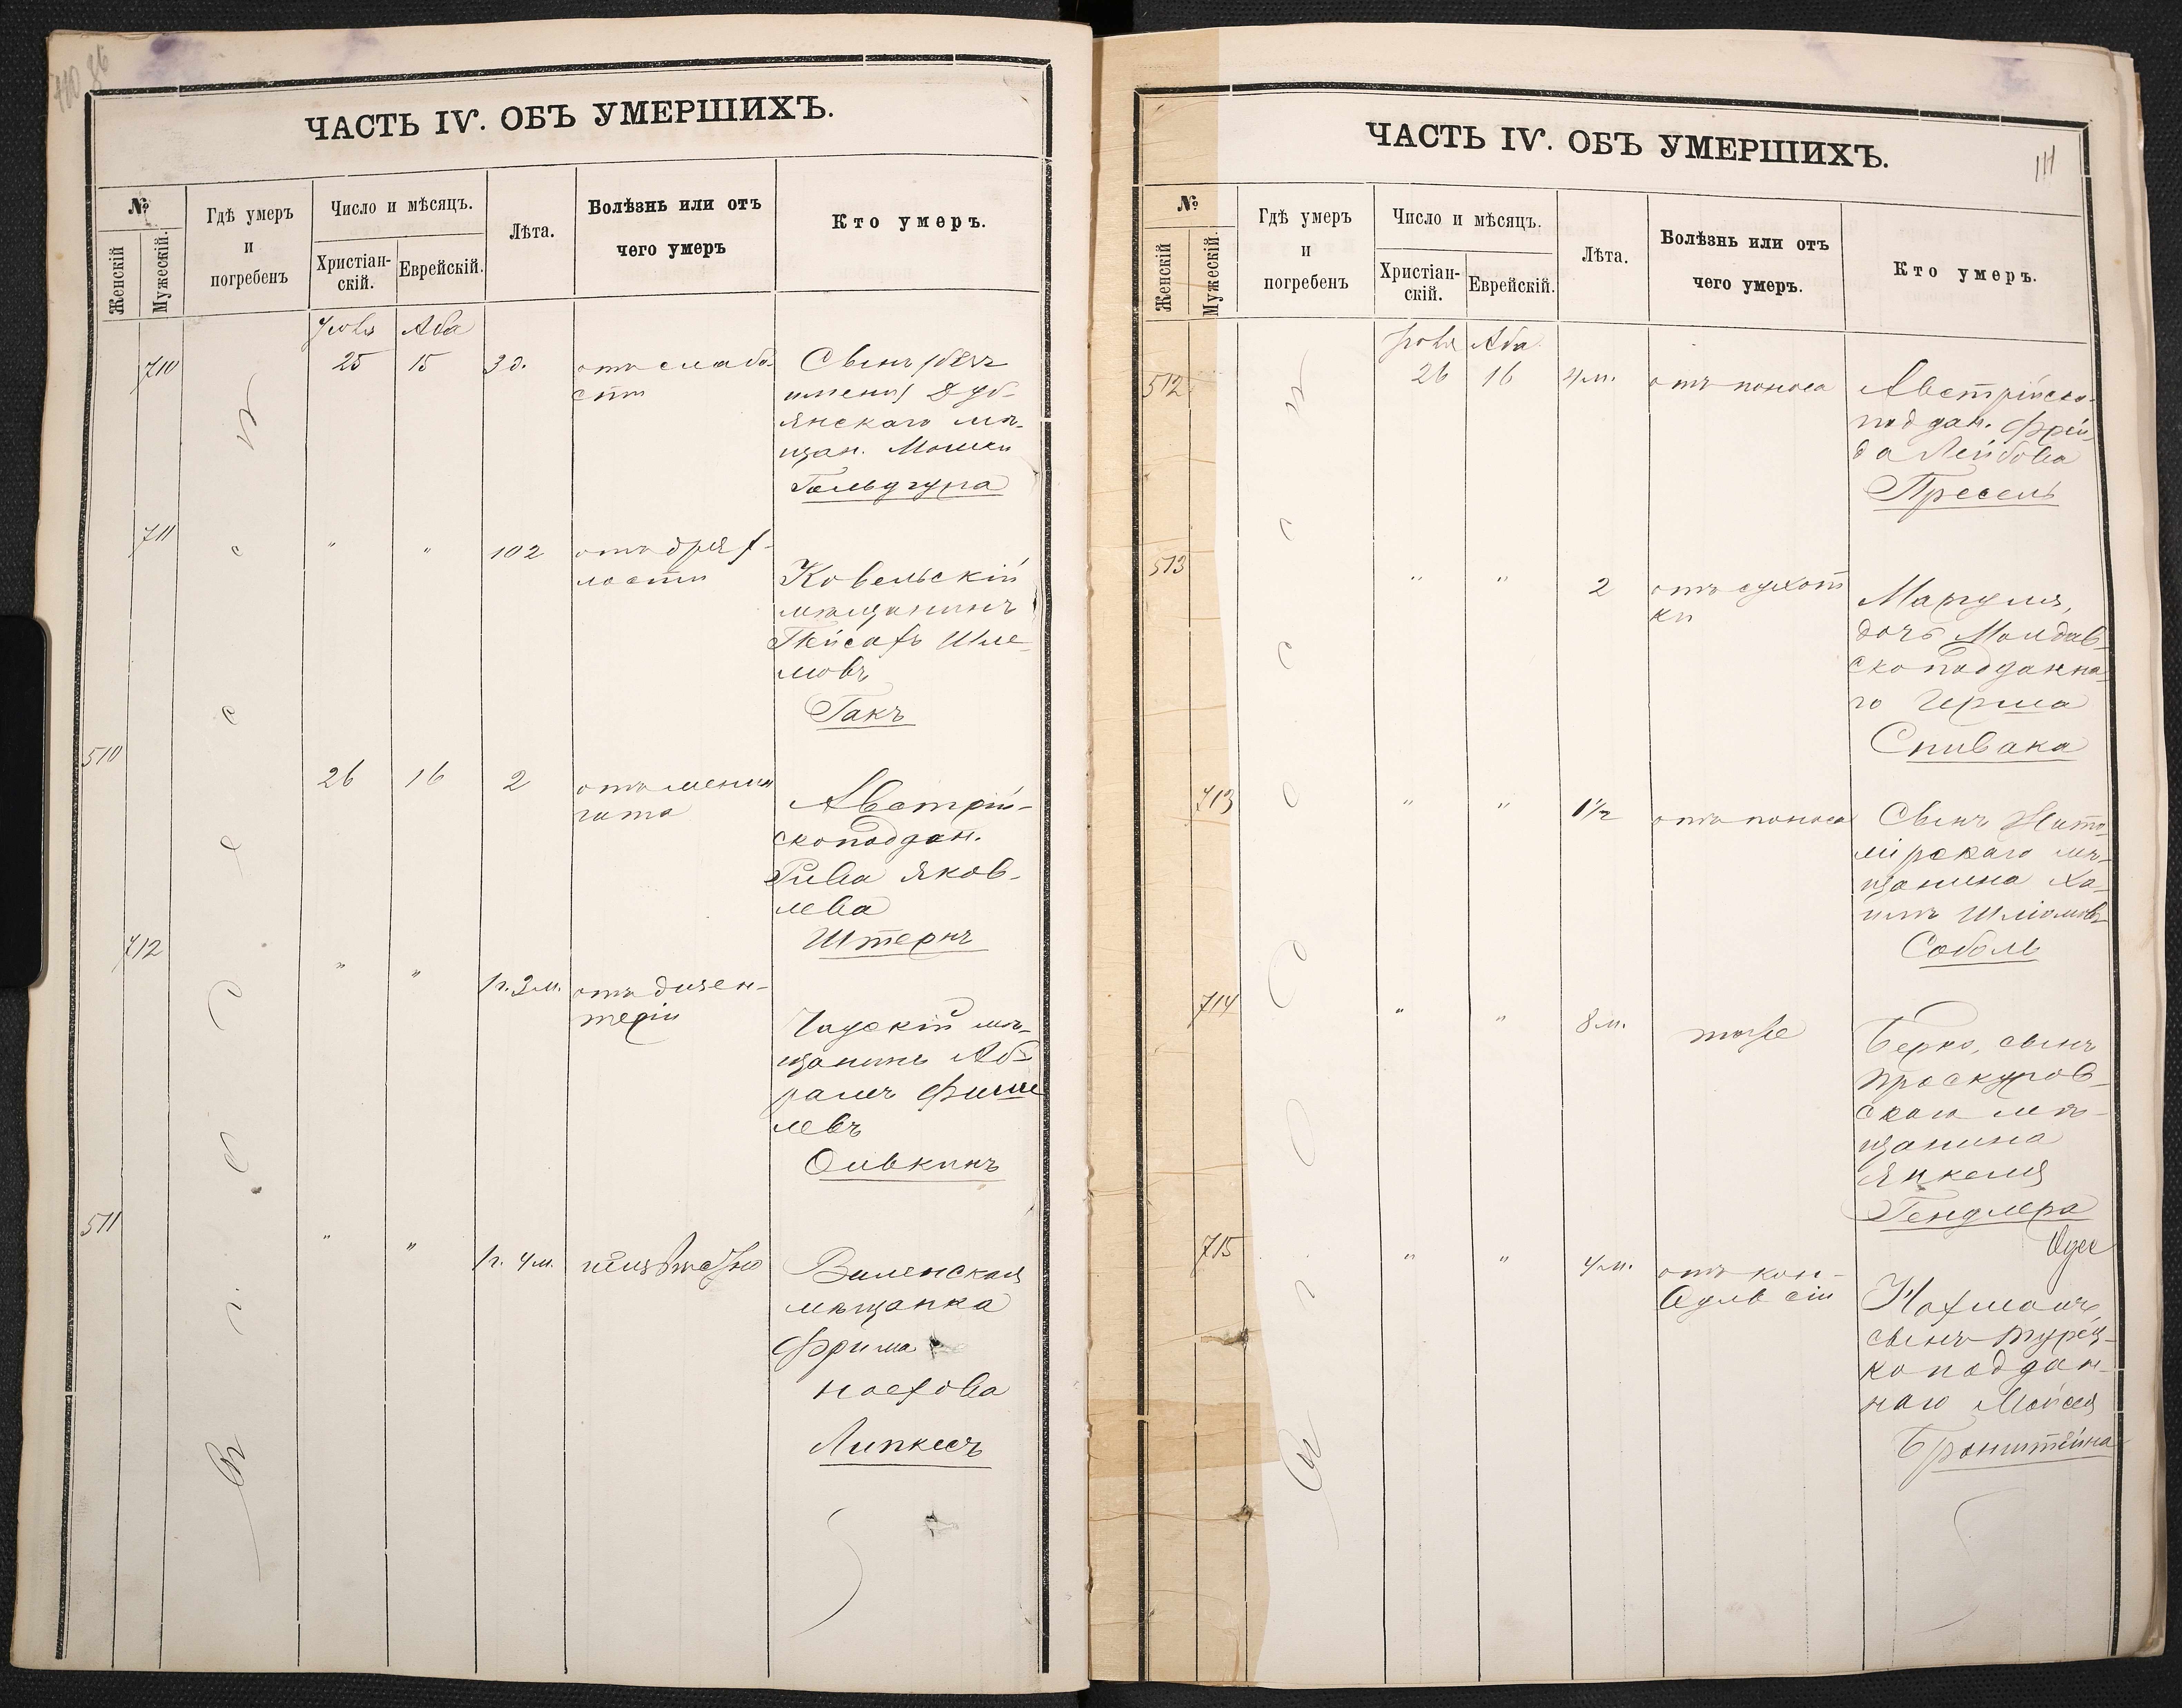 110 86
ЧАСТЬ IV. ОБЪ УМЕРШИХЪ.
№
Женскій
Мужескій.
Гдѣ умеръ
и
погребенъ
Число и мѣсяцъ.
Христіан-
скій.
Еврейскій.
Лѣта.
Болѣзнь или отъ
чего умеръ
Кто умеръ.
Іюля Аба
710 25 15 3 д. отъ слабо
сти
Сынъ (безъ
имени) Дуб-
янскаго мѣ-
щан. Мошки
711 " " 102 отъ дрях-
лости
Ковельскій
мѣщанинъ
Шле-
мовъ
Гакъ
510 26 16 2 отъ менин
гита
Австрій-
скоподдан.
Рива Яков-
лева
Штернъ
712 " " 1 г. 3 м. отъ дизен-
теріи
мѣ-
щанинъ Аб-
рамъ Фише
левъ
Оивкинъ
511 " " 1 г. 4 м.
Виленская
мѣщанка
Фрима
Носхова
Липкесъ
ЧАСТЬ IV. ОБЪ УМЕРШИХЪ.
111
№
Женскій
Мужескій.
Гдѣ умеръ
и
погребенъ
Число и мѣсяцъ.
Христіан-
скій.
Еврейскій.
Лѣта.
Болѣзнь или отъ
чего умеръ.
Кто умеръ.
Іюля Аба
512 26 16 4 м. отъ поноса
Австрійско-
поддан. Фрей-
да Лейбова
Пресель
513 " " 2 отъ сухот
ки
Маргуля,
дочь Молдав-
скоподданна-
го Герша
Спивака
713 " " 1 1/2 отъ поноса
Сынъ Жито-
мірскаго мѣ-
щанина Ха-
имъ Шліомовъ
Соболь
714 " " 8 м. тоже
Берко, сынъ
Проскуров-
скаго мѣ-
щанина
Янкеля
Гендлера
715 " " 4 м. отъ кон-
вульсіи
Нахманъ,
сынъ турец-
коподдан-
наго Мойсея
Бронштейна